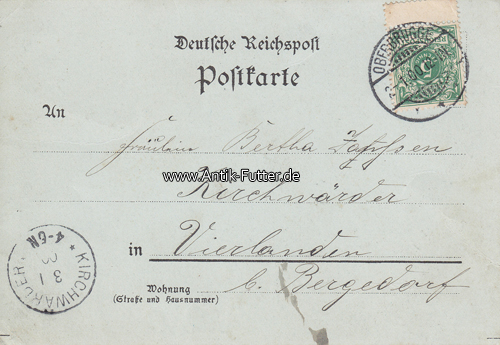 Deutsche Reichspost
Postkarte
OBERBRÜGGE
An
Fräulein Bertha
www.Antik-Futter.de
Kirchwärder
in Vierlanden
b. Bergedorf
Wohnung
(Straße und Hausnummer)
KIRCHWÄRDER
3 1
4-6N